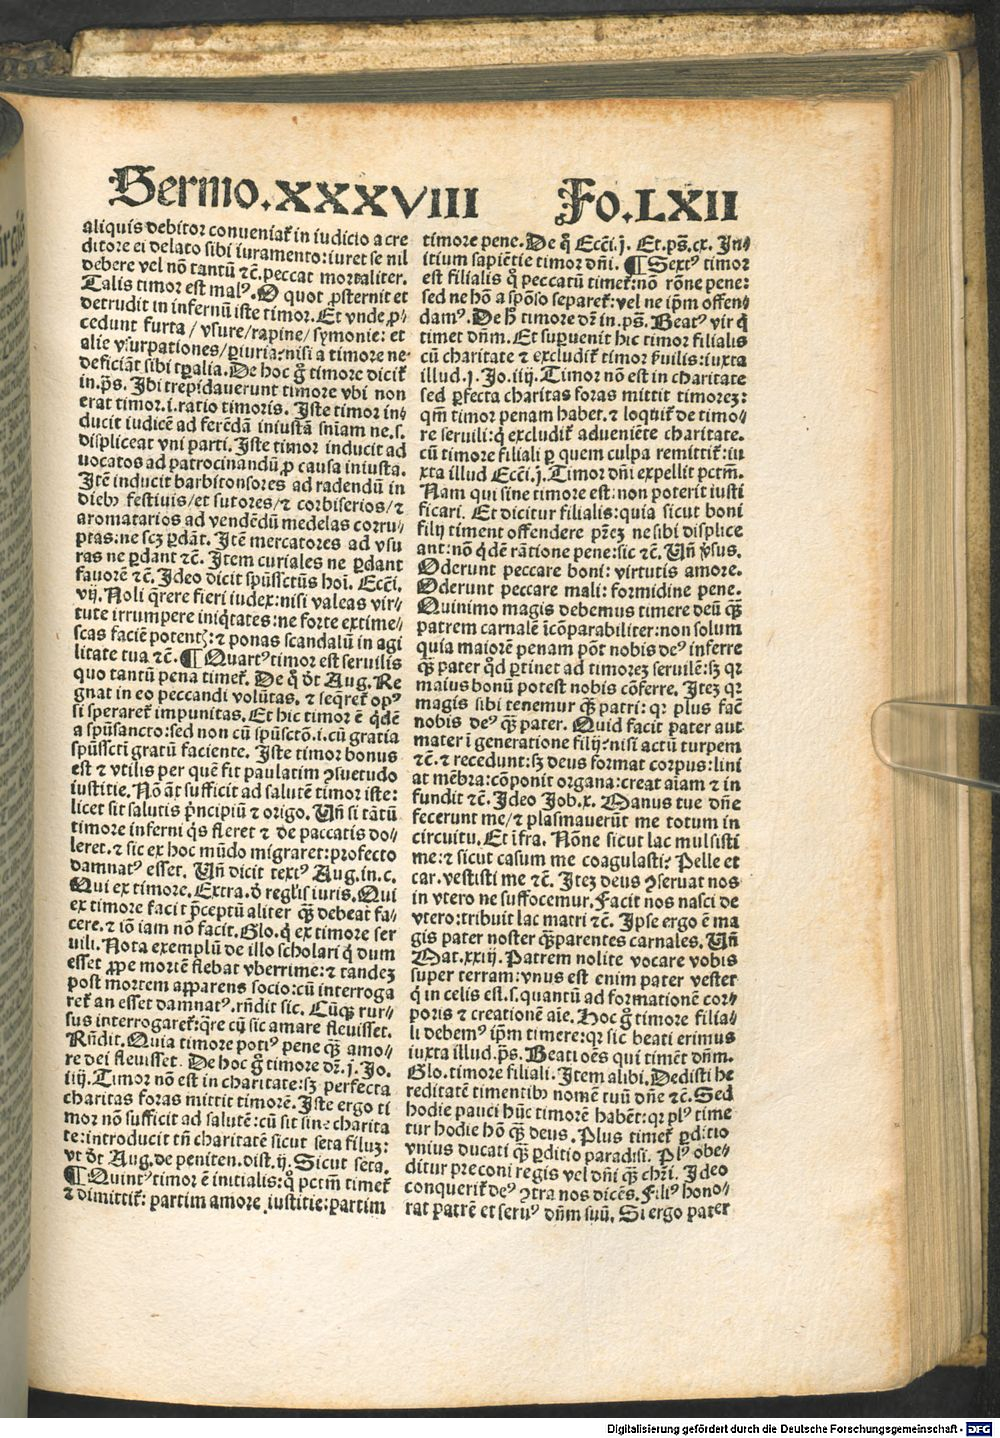 Sermo.XXXVIII Fo.LXII
aliquis debitor conueniat᷑ in iudicio a cre
ditore ei delato sibi iuramento: iuret se nil
debere vel nō tantū ⁊c̄. peccat mortaliter.
Talis timor est malꝰ. O quot ꝓsternit et
detrudit in infernū iste timor. Et vnde ꝓ⸗
cedunt furta / vsure / rapine / symonie: et
alie vsurpationes / ꝑiuria: nisi a timore ne⸗
deficiāt sibi tꝑalia. De hoc g̊ timore dicit᷑
in.ps̄. Ibi trepidauerunt timore vbi non
erat timor.i.ratio timoris. Iste timor in⸗
ducit iudicē ad ferēdā iniustā sn̄iam ne.s.
displiceat vni parti. Iste timor inducit ad
uocatos ad patrocinandū ꝓ causa iniusta.
Itē inducit barbitonsores ad radendū in
diebꝫ festiuis / et sutores / ⁊ corbiserios / ⁊
aromatarios ad vendēdū medelas corru⸗
ptas: ne scꝫ ꝑdāt. Itē mercatores ad vsu
ras ne ꝑdant ⁊c̄. Item curiales ne ꝑdant
fauorē ⁊c̄. Ideo dicit spūssctūs hoī. Ecc̄i.
vij. Noli q̄rere fieri iudex: nisi valeas vir⸗
tute irrumpere iniq̇tates: ne forte extime⸗
scas faciē potentꝭ: ⁊ ponas scandalū in agi
litate tua ⁊c̄. ¶ Quartꝰ timor est seruilis
quo tantū pena timet᷑. De q̊ d̄t Aug. Re
gnat in eo peccandi volūtas. ⁊ seq̄ret᷑ opꝰ
si speraret᷑ impunitas. Et hic timor ē q̇dē
a spūsancto: sed non cū spūsctō.i.cū gratia
spūsscti gratū faciente. Iste timor bonus
est ⁊ vtilis per quē fit paulatim ꝯsuetudo
iustitie. Nō āt sufficit ad salutē timor iste:
licet sit salutis p̄ncipiū ⁊ origo. Un̄ si tātū
timore inferni q̇s fleret ⁊ de paccatis do⸗
leret. ⁊ sic ex hoc mūdo migraret: profecto
damnatꝰ esset. Un̄ dicit textꝰ Aug.in.c.
Qui ex timore. Extra. d̄ reglis iuris. Qui
ex timore facit p̄ceptū aliter q̄ꝫ debeat fa⸗
cere. ⁊ iō iam nō facit. Glo. q̄ ex timore ser
uili. Nota exemplū de illo scholari q̇ dum
esset ꝓpe mortē flebat vberrime: ⁊ tandeꝫ
post mortem apparens socio: cū interroga
ret᷑ an esset damnatꝰ. rn̄dit sic. Cūqꝫ rur⸗
sus interrogaret᷑: q̄re cū sic amare fleuisset.
Rn̄dit. Quia timore potiꝰ pene q̄ꝫ amo⸗
re dei fleuisset. De hoc g̊ timore dr̄.j.Jo.
iiij. Timor nō est in charitate: sꝫ perfecta
charitas foras mittit timorē. Iste ergo ti
mor nō sufficit ad salutē: cū sit sine charita
te: introducit tn̄ charitatē sicut seta filuꝫ:
vt d̄t Aug. de peniten. dist. ij. Sicut seta.
¶ Quintꝰ timor ē initialis: q̊ pctm̄ timet᷑
⁊ dimittit᷑: partim amore iustitie: partim
timore pene. De q̊ Ecc̄i.j. Et.ps̄.cx. In⸗
itium sapiētie timor dn̄i. ¶ Sextꝰ timor
est filialis q̊ peccatū timet᷑: nō rōne pene:
sed ne hō a spōso separet᷑: vel ne ip̄m offen⸗
damꝰ. De h̊ timore dr̄ in.ps̄. Beatꝰ vir q̇
timet dn̄m. Et suꝑuenit hic timor filialis
cū charitate ⁊ excludit᷑ timor ẜuilis: iuxta
illud.j.Jo.iiij. Timor nō est in charitate
sed ꝑfecta charitas foras mittit timoreꝫ:
qm̄ timor penam habet. ⁊ loquit᷑ de timo⸗
re seruili: q̇ excludit᷑ adueniēte charitate.
cū timore filiali ꝑ quem culpa remittit᷑: iu
xta illud Ecc̄i.j. Timor dn̄i expellit pctm̄.
Nam qui sine timore est: non poterit iusti
ficari. Et dicitur filialis: quia sicut boni
filij timent offendere pr̄eꝫ ne sibi displice
ant: nō q̇dē rātione pene: sic ⁊c̄. Un̄ v̓sus.
Oderunt peccare boni: virtutis amore.
Oderunt peccare mali: formidine pene.
Quinimo magis debemus timere deū q̄ꝫ
patrem carnalē īcōparabiliter: non solum
quia maiorē penam pōt nobis deꝰ inferre
q̄ꝫ pater qd̓ ꝑtinet ad timoreꝫ seruilē: sꝫ qꝛ
maius bonū potest nobis cōferre. Iteꝫ qꝛ
magis sibi tenemur q̄ꝫ patri: qꝛ plus fac̄
nobis deꝰ q̄ꝫ pater. Quid facit pater aut
mater ī generatione filij: nisi actū turpem
⁊c̄. ⁊ recedunt: sꝫ deus format corpus: lini
at mēbra: cōponit organa: creat aīam ⁊ in
fundit ⁊c̄. Ideo Job.x. Manus tue dn̄e
fecerunt me / ⁊ plasmauerūt me totum in
circuitu. Et īfra. Nōne sicut lac mulsisti
me: ⁊ sicut casum me coagulasti? Pelle et
car. vestisti me ⁊c̄. Iteꝫ deus ꝯseruat nos
in vtero ne suffocemur. Facit nos nasci de
vtero: tribuit lac matri ⁊c̄. Ipse ergo ē ma
gis pater noster q̄ꝫ parentes carnales. Un̄
Mat.xxiij. Patrem nolite vocare vobis
super terram: vnus est enim pater vester
q̇ in celis est.s.quantū ad formationē cor⸗
poris ⁊ creationē aīe. Hoc g̊ timore filia⸗
li debemꝰ ip̄m timere: qꝛ sic beati erimus
iuxta illud.ps̄. Beati oēs qui timēt dn̄m.
Glo. timore filiali. Item alibi. Dedisti he
reditatē timentibꝫ nomē tuū dn̄e ⁊c̄. Sed
hodie pauci hūc timorē habēt: qꝛ plꝰ time
tur hodie hō q̄ꝫ deus. Plus timet᷑ ꝑditio
vnius ducati q̄ꝫ ꝑditio paradisi. Plꝰ obe⸗
ditur preconi regis vel dn̄i q̄ꝫ chr̄i. Ideo
conquerit᷑ deꝰ ꝯtra nos dicēs. Filiꝰ hono⸗
rat patrē et seruꝰ dn̄m suū. Si ergo pater
Digitalisierung gefördert durch die Deutsche Forschungsgemeinschaft - DFG